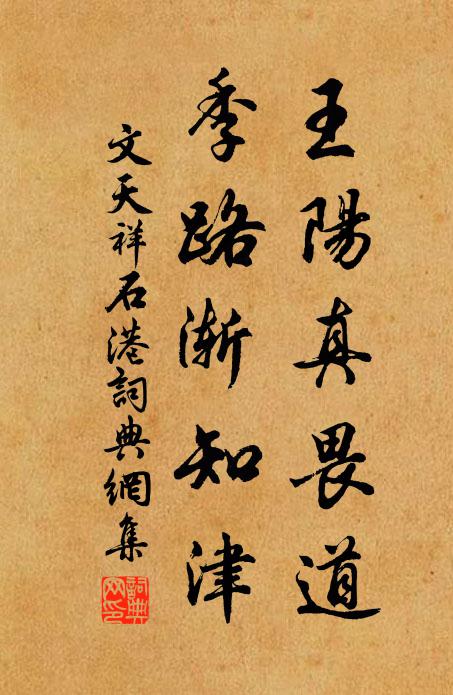 王陽真畏道
季路漸知津
文天祥石港詞典網集
詞典
网印